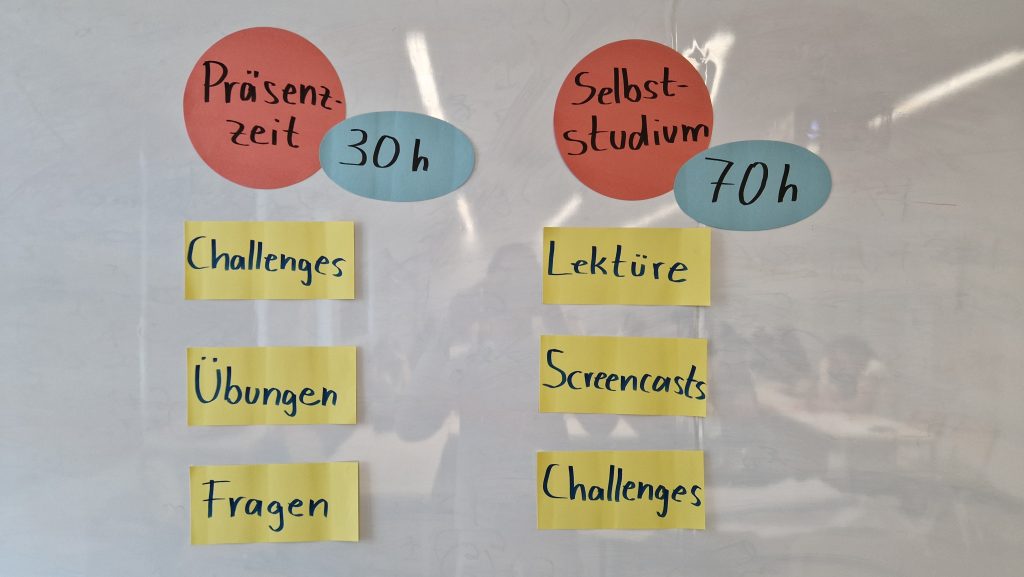 Präsenz-
zeit
30 h
Challenges
Übungen
Fragen
Selbst-
studium
70 h
Lektüre
Screencasts
Challenges